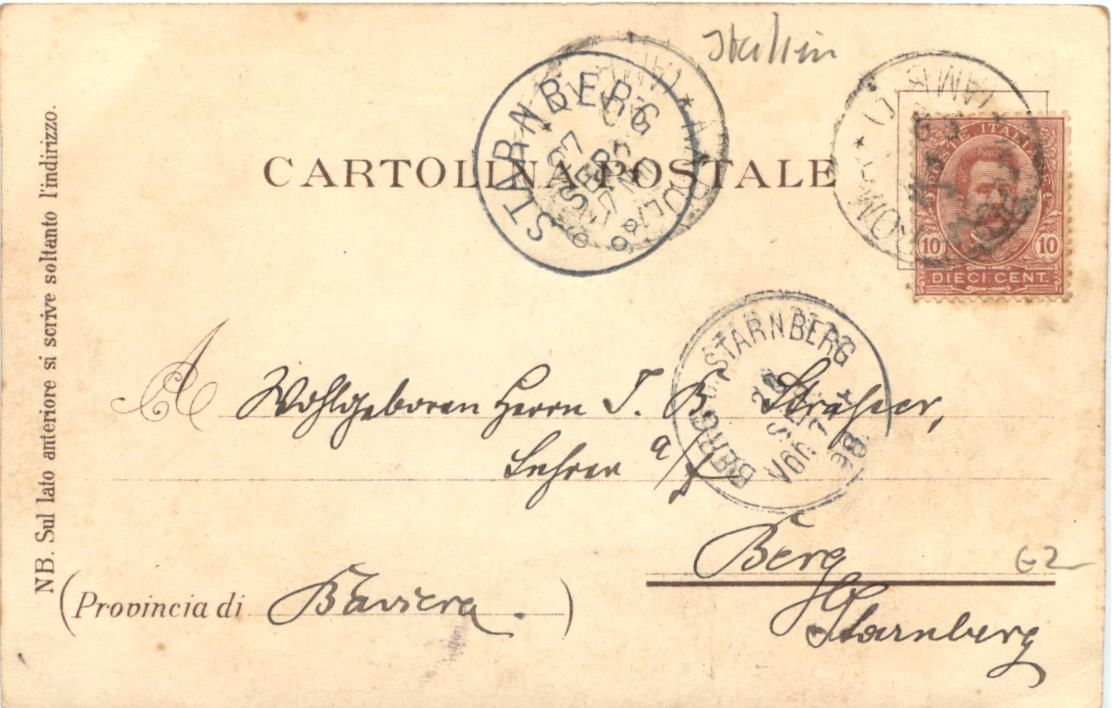 CARTOLINA POSTALE
POSTE ITALIANE
10 10
DIECI CENT.
STARNBERG
27
SEP.
BERG b/STARNBERG
28
SEP
VOR. 7-8
98
NB. Sul lato anteriore si scrive soltanto l'indirizzo.
A Wohlgeboren Herrn J. B.
Lehrer a/D
Berg
62
(Provincia di Baviera.)
Starnberg